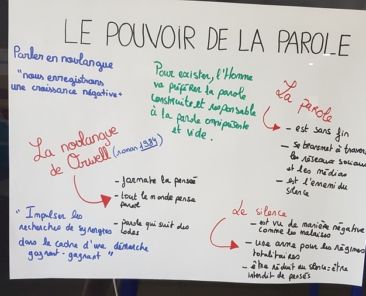 LE POUVOIR DE LA PAROLE
Parler en novlangue
"nous enregistrons
une croissance négative"
Pour exister, l'Homme
va préférer la parole
construite et responsable
à la parole omnipotente
et vide.
La parole
- est sans fin
- se transmet à travers
les réseaux sociaux
et les médias
- est l'ennemi du
silence
La novlangue
de Orwell (roman 1984)
- formate la pensée
- tout le monde pense
pareil
- parole qui suit des
codes
"Impulser les
recherches de synergies
dans le cadre d'une démarche
gagnant-gagnant"
Le silence
- est vu de manière négative
comme les malaises
- une arme pour les régimes
totalitaires
- être réduit au silence = être
interdit de pensés